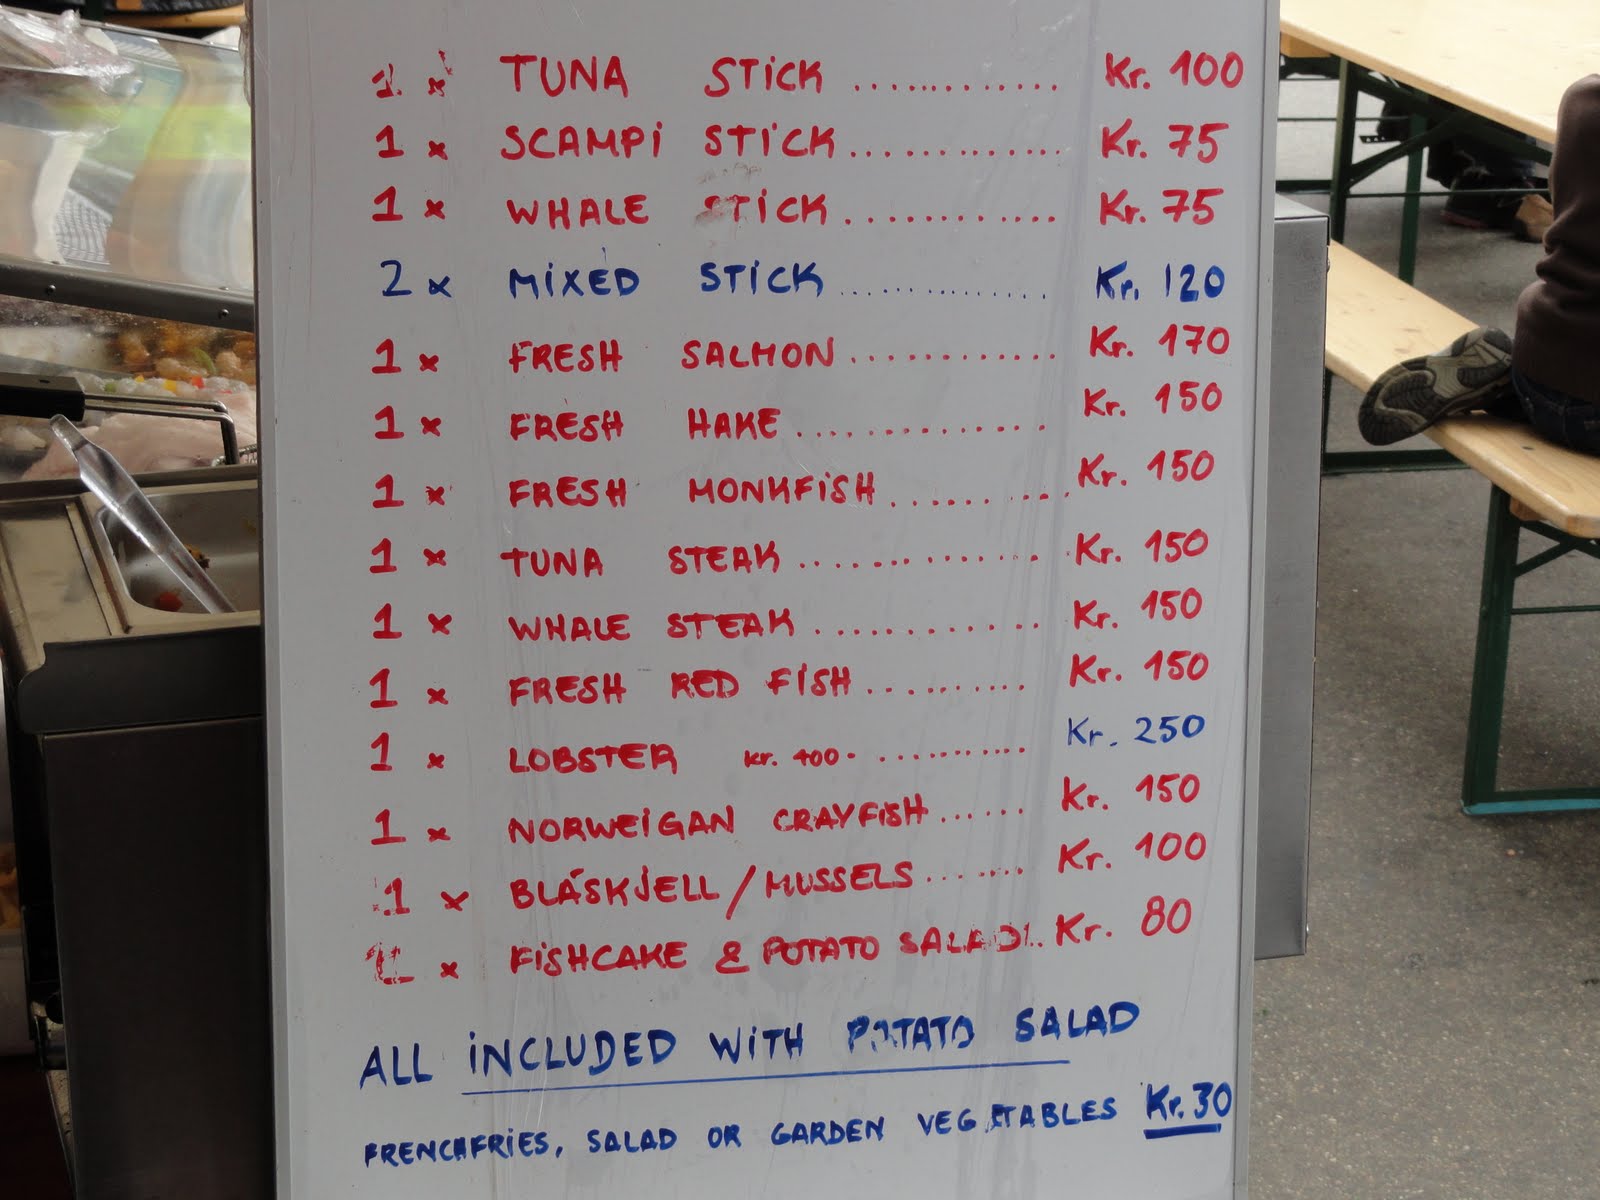 1 x TUNA STiCK .............. Kr. 100
1 x SCAMPi STiCK .............. Kr. 75
1 x WHALE STiCK ............. Kr. 75
2 x MiXED STiCK .............. Kr. 120
1 x FRESH SALMON ............. Kr. 170
1 x FRESH HAKE .............. Kr. 150
1 x FRESH MONKFiSH .......... Kr. 150
1 x TUNA STEAK .............. Kr. 150
1 x WHALE STEAK ............. Kr. 150
1 x FRESH RED FiSH .......... Kr. 150
1 x LOBSTER Kr. 400- .......... Kr. 250
1 x NORWEiGAN CRAYFiSH ...... Kr. 150
1 x BLÁSKJELL / MUSSELS ....... Kr. 100
1 x FiSHCAKE & POTATO SALAD .. Kr. 80
ALL iNCLUDED WiTH POTATO SALAD
FRENCHFRiES, SALAD OR GARDEN VEGETABLES Kr. 30